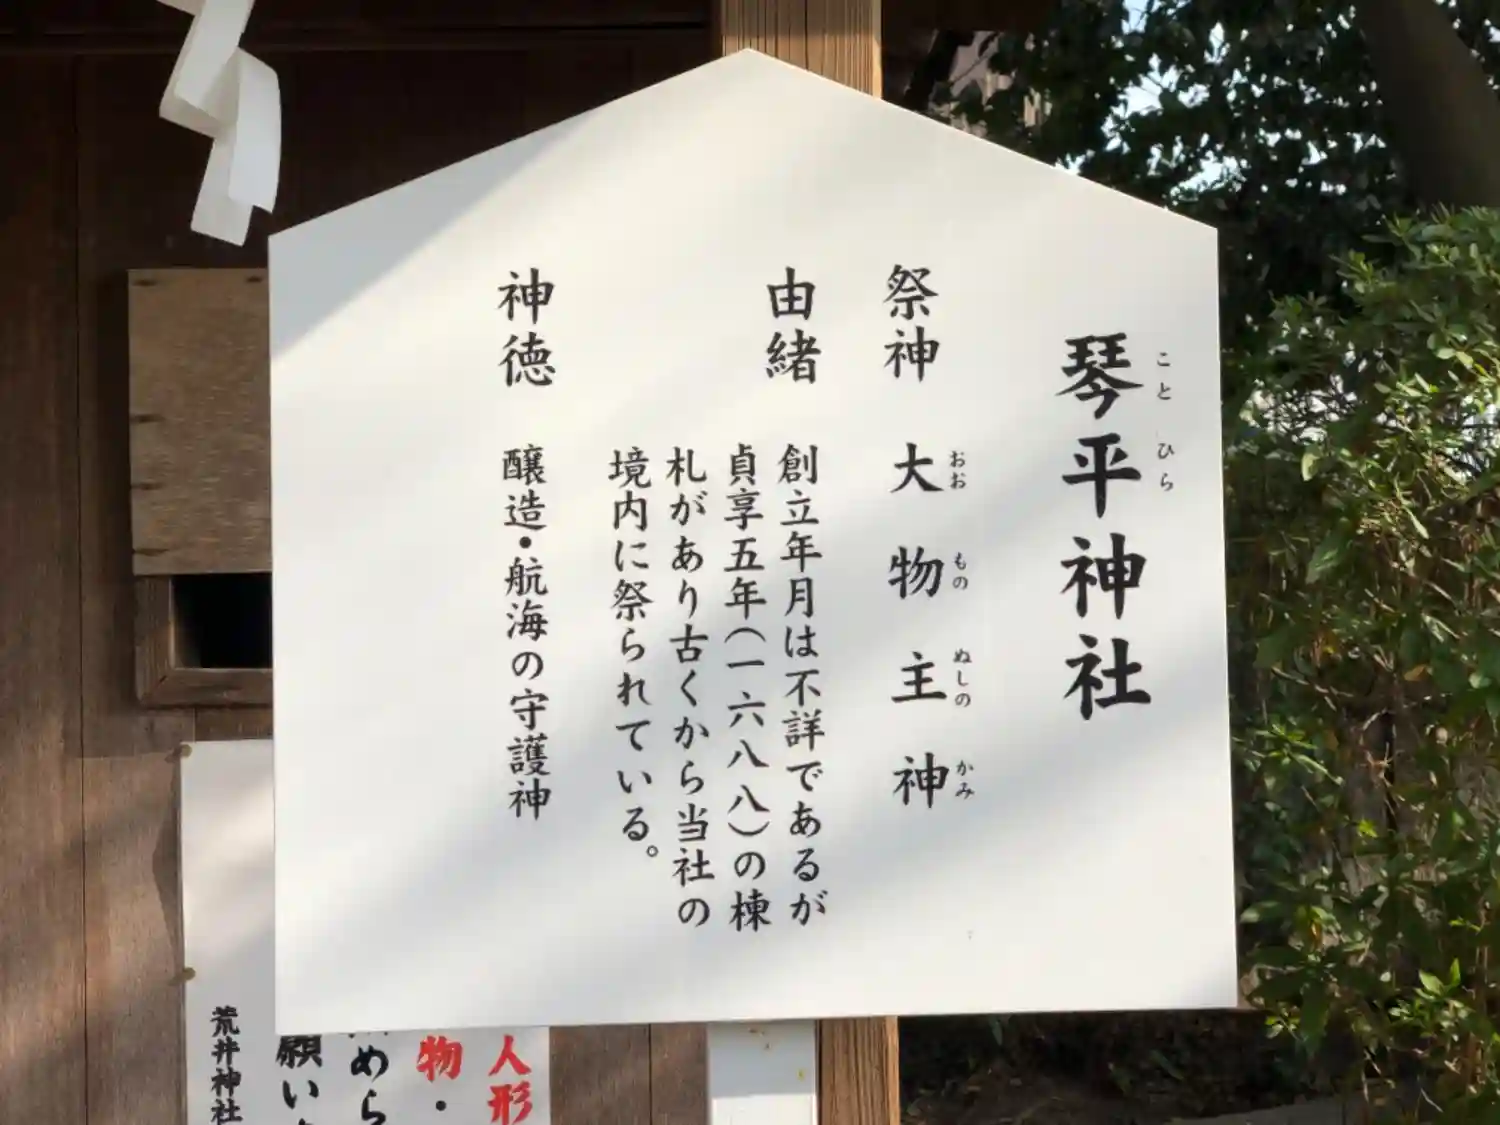 琴平神社
こと ひら
祭神 大物主神
おお もの ぬしの かみ
由緒 創立年月は不詳であるが
貞享五年(一六八八)の棟
札があり古くから当社の
境内に祭られている。
神徳 醸造・航海の守護神
人形
物・
めら
願い
荒井神社